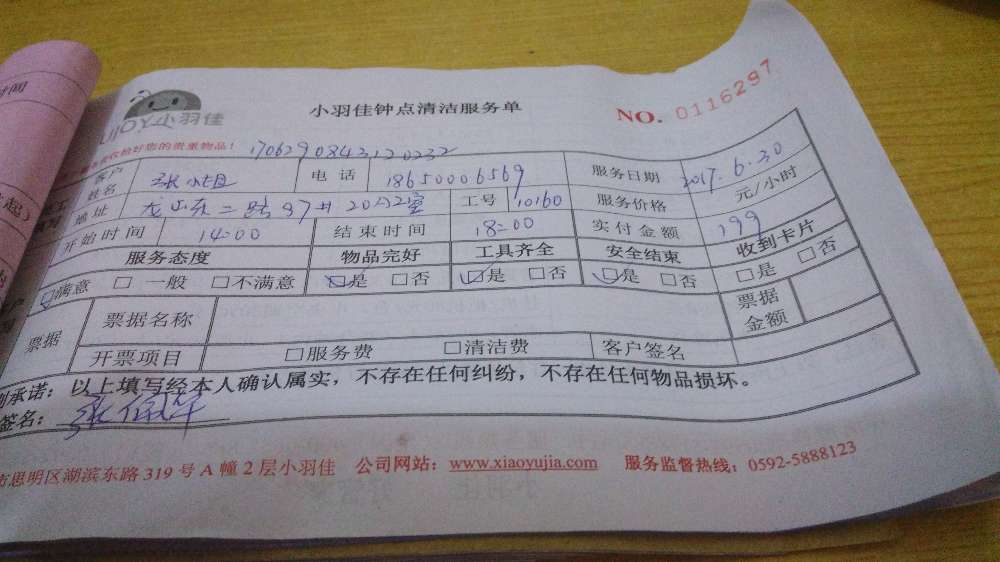 小羽佳
小羽佳钟点清洁服务单
NO. 0116297
收检好您的贵重物品! 1706290843120232
客户姓名 张小姐 电话 18650006569 服务日期 2017.6.30
地址 龙山东二路97#2042室 工号 10160 服务价格 元/小时
开始时间 14:00 结束时间 18:00 实付金额 199
服务态度 物品完好 工具齐全 安全结束 收到卡片
满意 □ 一般 □不满意 是 □否 是 □否 是 □否 □是 □否
票据 票据名称 票据金额
开票项目 □服务费 □清洁费 客户签名
承诺：以上填写经本人确认属实，不存在任何纠纷，不存在任何物品损坏。
签名：
市思明区湖滨东路319号A幢2层小羽佳 公司网站：www.xiaoyujia.com 服务监督热线：0592-5888123
时间
起)